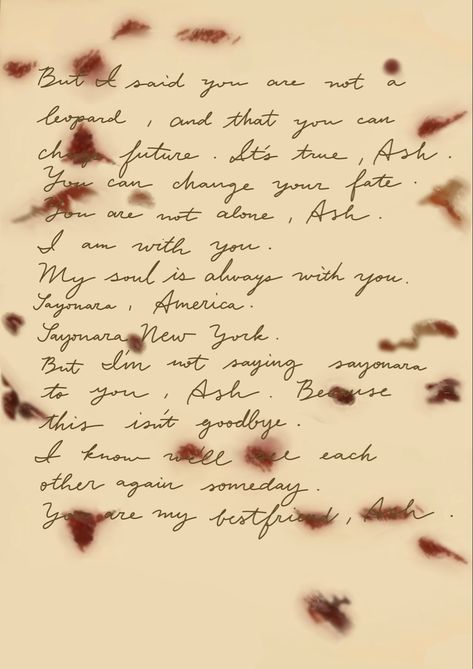 But I said you are not a
leopard , and that you can
change future . It's true , Ash .
You can change your fate .
You are not alone , Ash .
I am with you .
My soul is always with you.
Sayonara , America .
Sayonara New York .
But I'm not saying sayonara
to you , Ash . Because
this isn't goodbye .
I know we'll see each
other again someday .
You are my bestfriend , Ash .